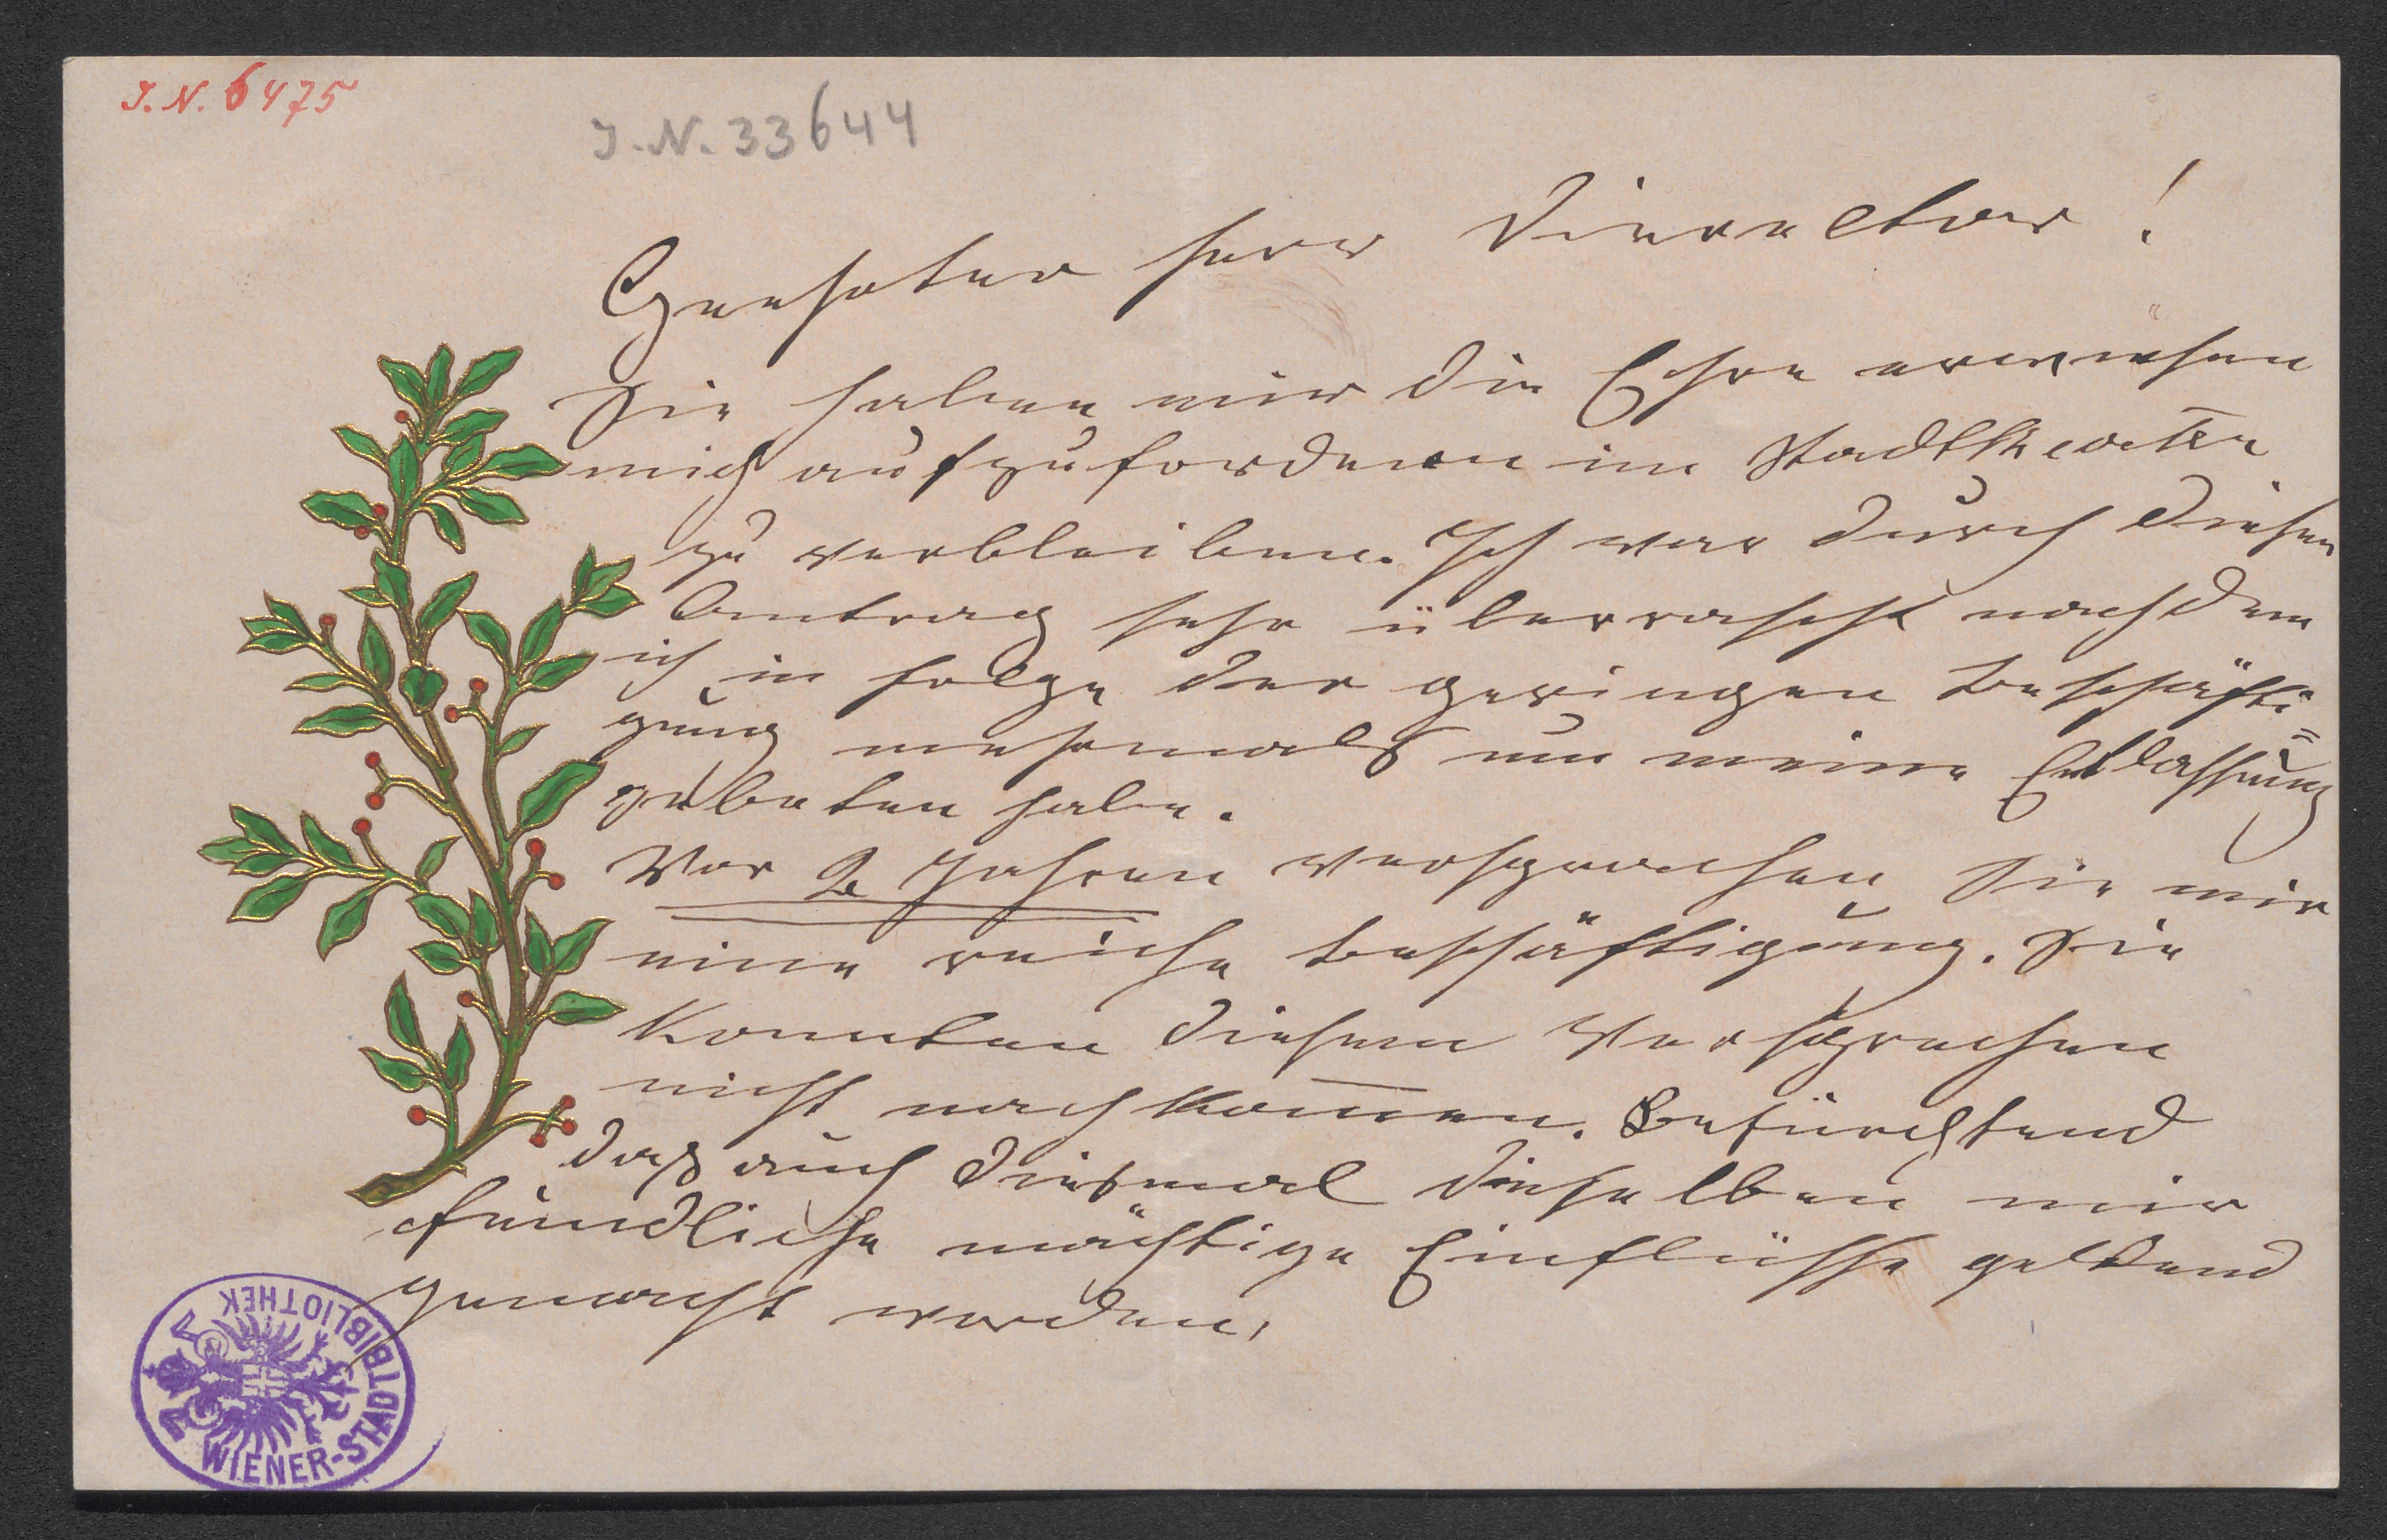 J. N. 6475
J. N. 33644
Geehrter Herr Direector!
Sie haben mir die Ehre erwiesen
mich aufzufordern im Stadttheater
zu verbleiben. Ich war durch diesen
Antrag sehr überrascht nachdem
ich in folge der geringen Beschäfti=
gung mehrmals um meine Entlassung
gebeten habe.
Vor 2 Jahren versprachen Sie mir
eine reiche Beschäftigung. Sie
konnten diesem Versprechen
nicht nachkom̅en. Befürchtend
daß auch diesmal dieselben mir
feindliche mächtige Einflüsse geltend
gemacht werden,
WIENER-STADTBIBLIOTHEK